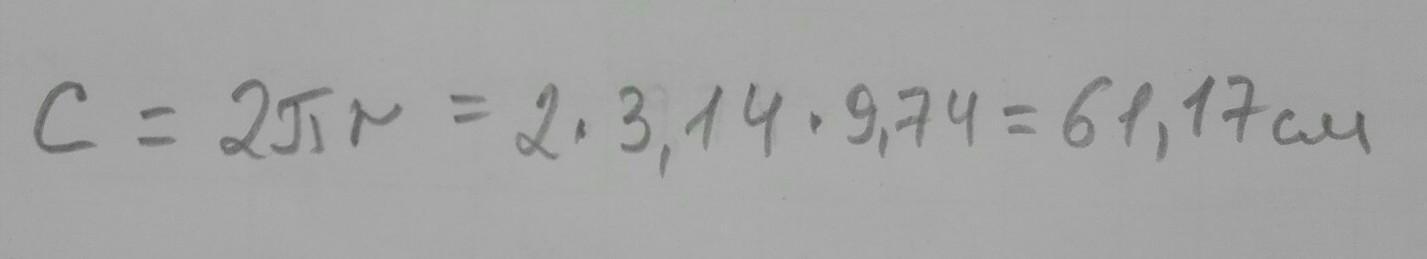 C = 2πr = 2·3,14·9,74 = 61,17 см